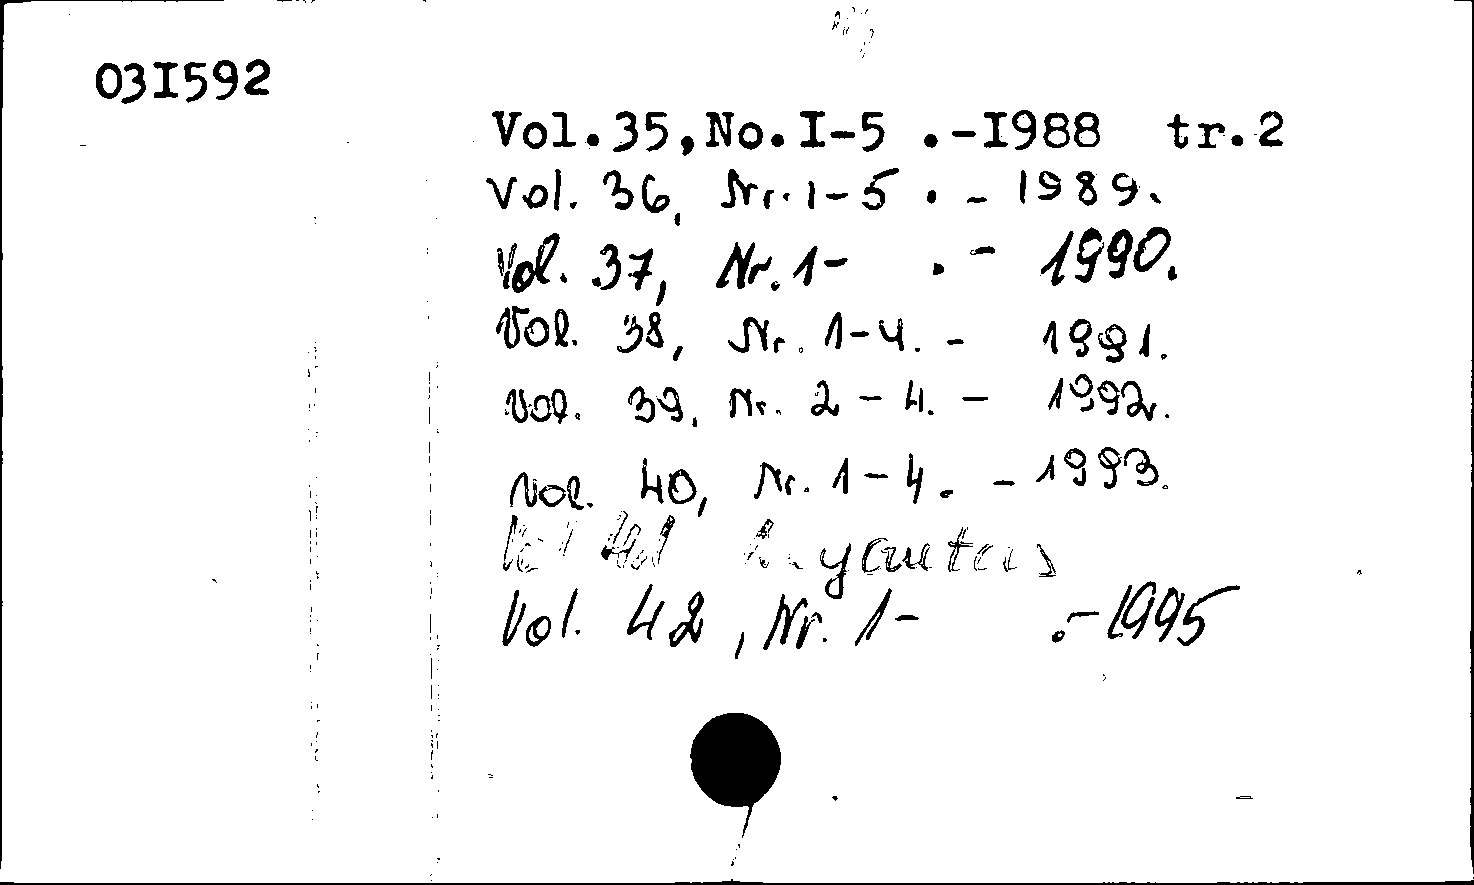 03I592
Vol.35,No.I-5 .-I988 tr.2
Vol. 36, Nr. 1-5 . - 1989.
Vol. 37, Nr. 1- . - 1990.
Vol. 38, Nr. 1-4. - 1991.
Vol. 39, Nr. 2-4. - 1992.
Vol. 40, Nr. 1-4. - 1993.
Vol 41
Vol. 42, Nr. 1- .-1995